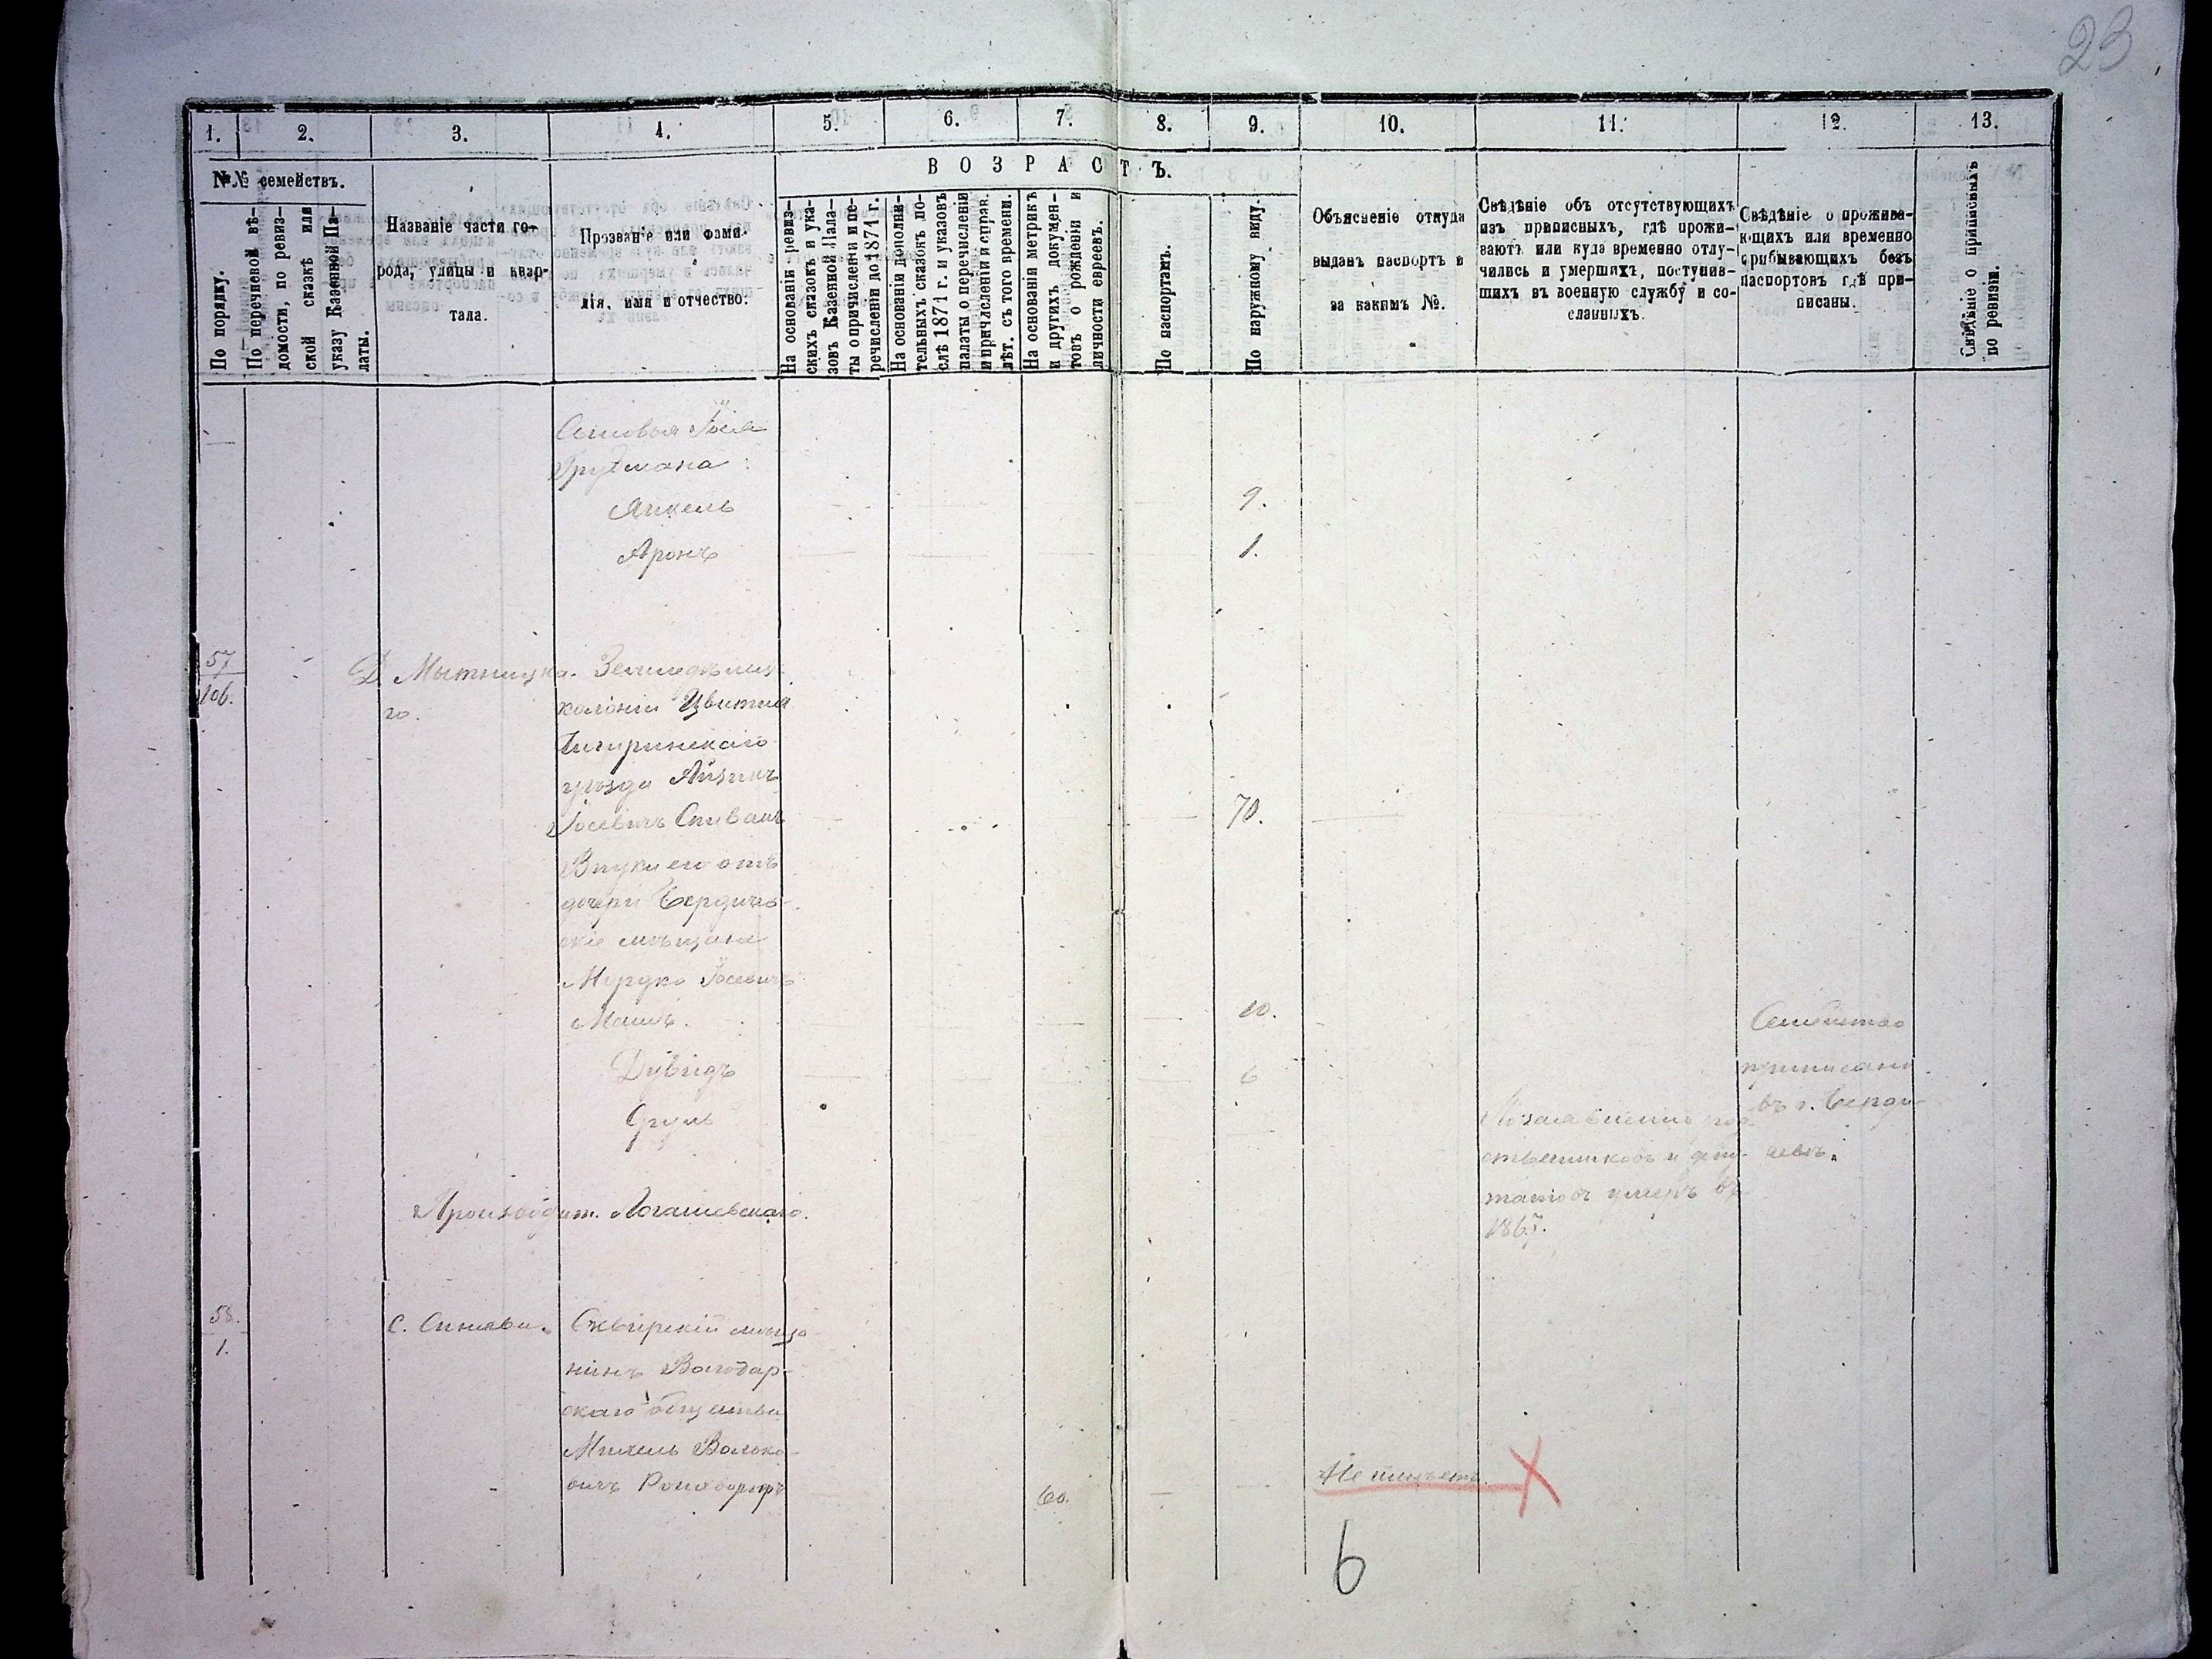 23
1.
2.
3.
4.
5.
6.
7.
8.
9.
10.
11.
12.
13.
№№ семействъ.
ВОЗРАСТЪ.
По порядку.
По перечневой вѣ-
домости, по ревиз-
ской сказкѣ или
указу Казенной Па-
латы.
Названіе части го-
рода, улицы и квар-
тала.
Прозваніе или фами-
лія, имя и отчество.
На основаніи ревиз-
скихъ сказокъ и ука-
зовъ Казенной Пала-
ты о причисленіи и пе-
речисленіи до 1871 г.
На основаніи дополни-
тельныхъ сказокъ по-
слѣ 1871 г. и указовъ
палаты о перечисленіи
и причисленіи и справ.
лѣт. съ того времени.
На основаніи метрикъ
и другихъ докумен-
товъ о рожденіи и
личности евреевъ.
По паспортамъ.
По наружному виду.
Объясненіе откуда
выданъ паспортъ и
за какимъ №.
Свѣдѣніе объ отсутствующихъ
изъ приписныхъ, гдѣ прожи-
ваютъ или куда временно отлу-
чились и умершихъ, поступив-
шихъ въ военную службу и со-
сланныхъ.
Свѣдѣніе о прожива-
ющихъ или временно
прибывающихъ безъ
паспортовъ гдѣ при-
писаны.
Свѣдѣніе о приписныхъ
по ревизіи.
Сыновья Іося
Грутмана:
Янкель 9.
Аронъ 1.
57
106.
Д. Мытницка-
го.
Земледѣлец
колоніи
Чигиринскаго
уѣзда Айзикъ
Іосевичъ Спивакъ 70.
Внуки его отъ
дочери Бердичев-
скіе мѣщане
Мордко Іосевичъ
10.
Дувидъ 6
Сруль
Семейство
приписано
въ г. Берди-
чевѣ.
По заявленію род-
ственниковъ и депу-
татовъ умеръ въ
Производит.
58.
1.
С.
Сквирскій мѣща-
нинъ Володар-
скаго общества
Михель Волько-
вичъ 60.
Не имѣетъ.
6